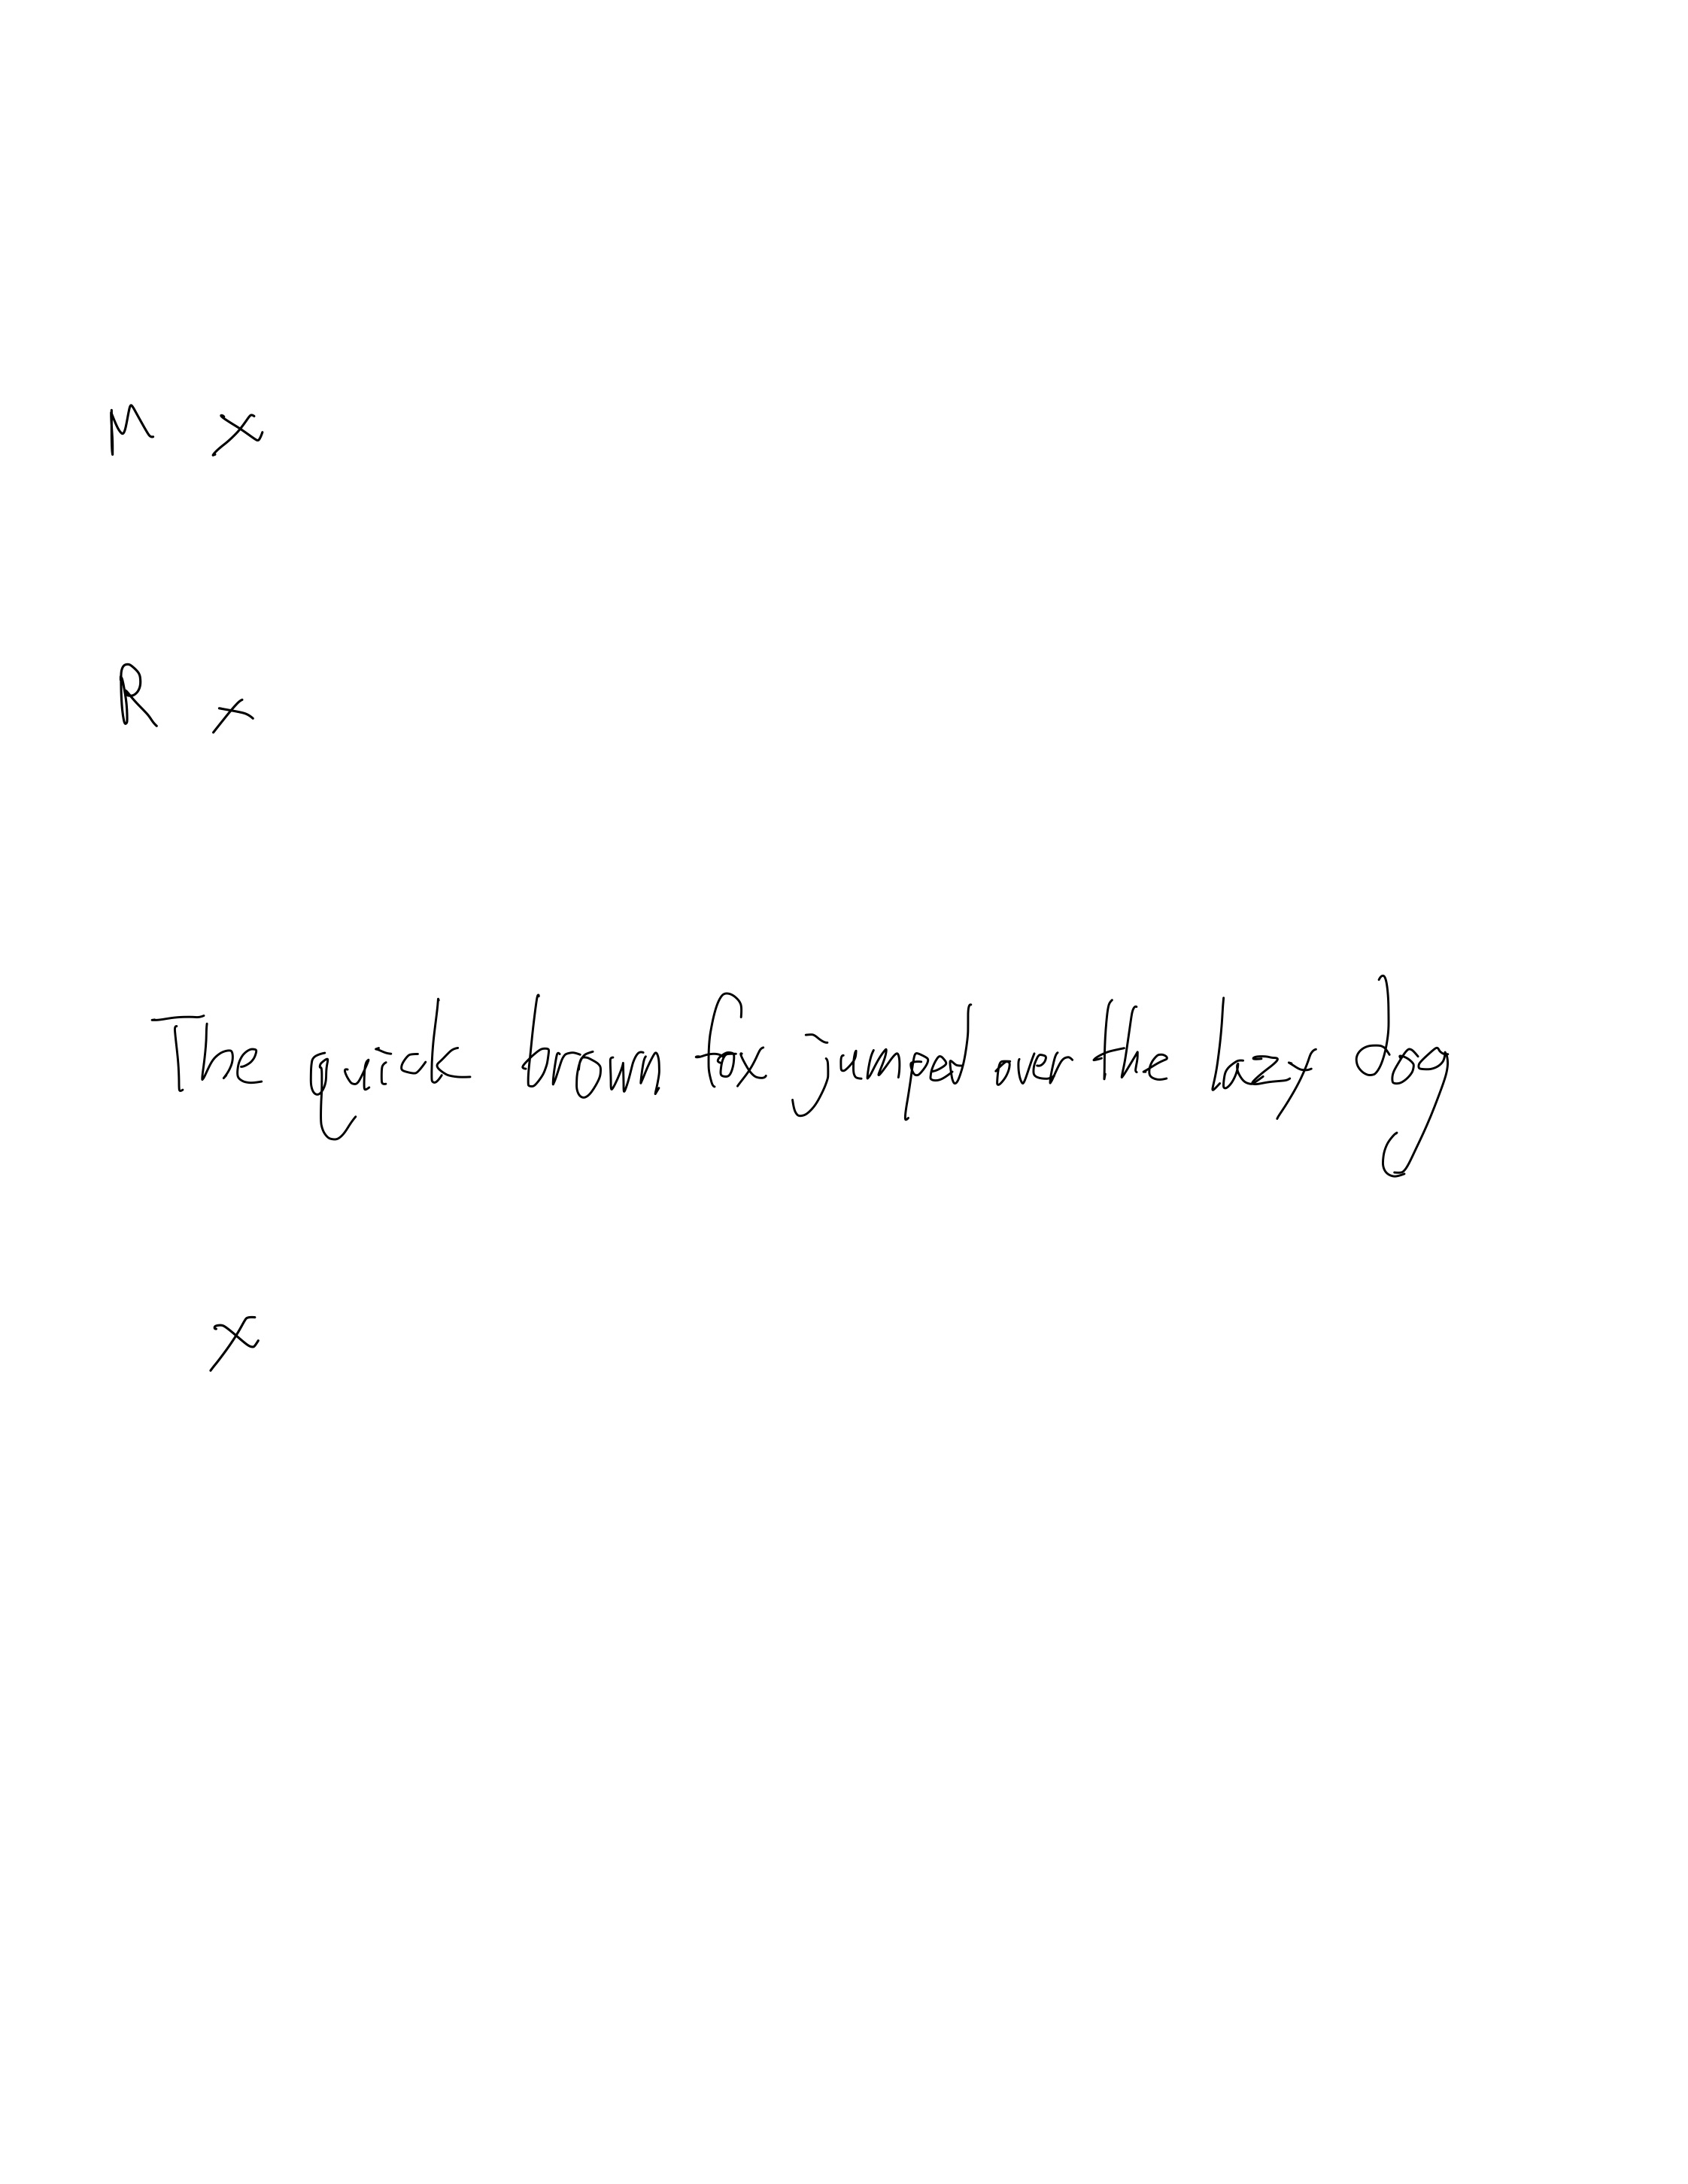 M x
R x
The quick brown fox jumped over the lazy dog
x